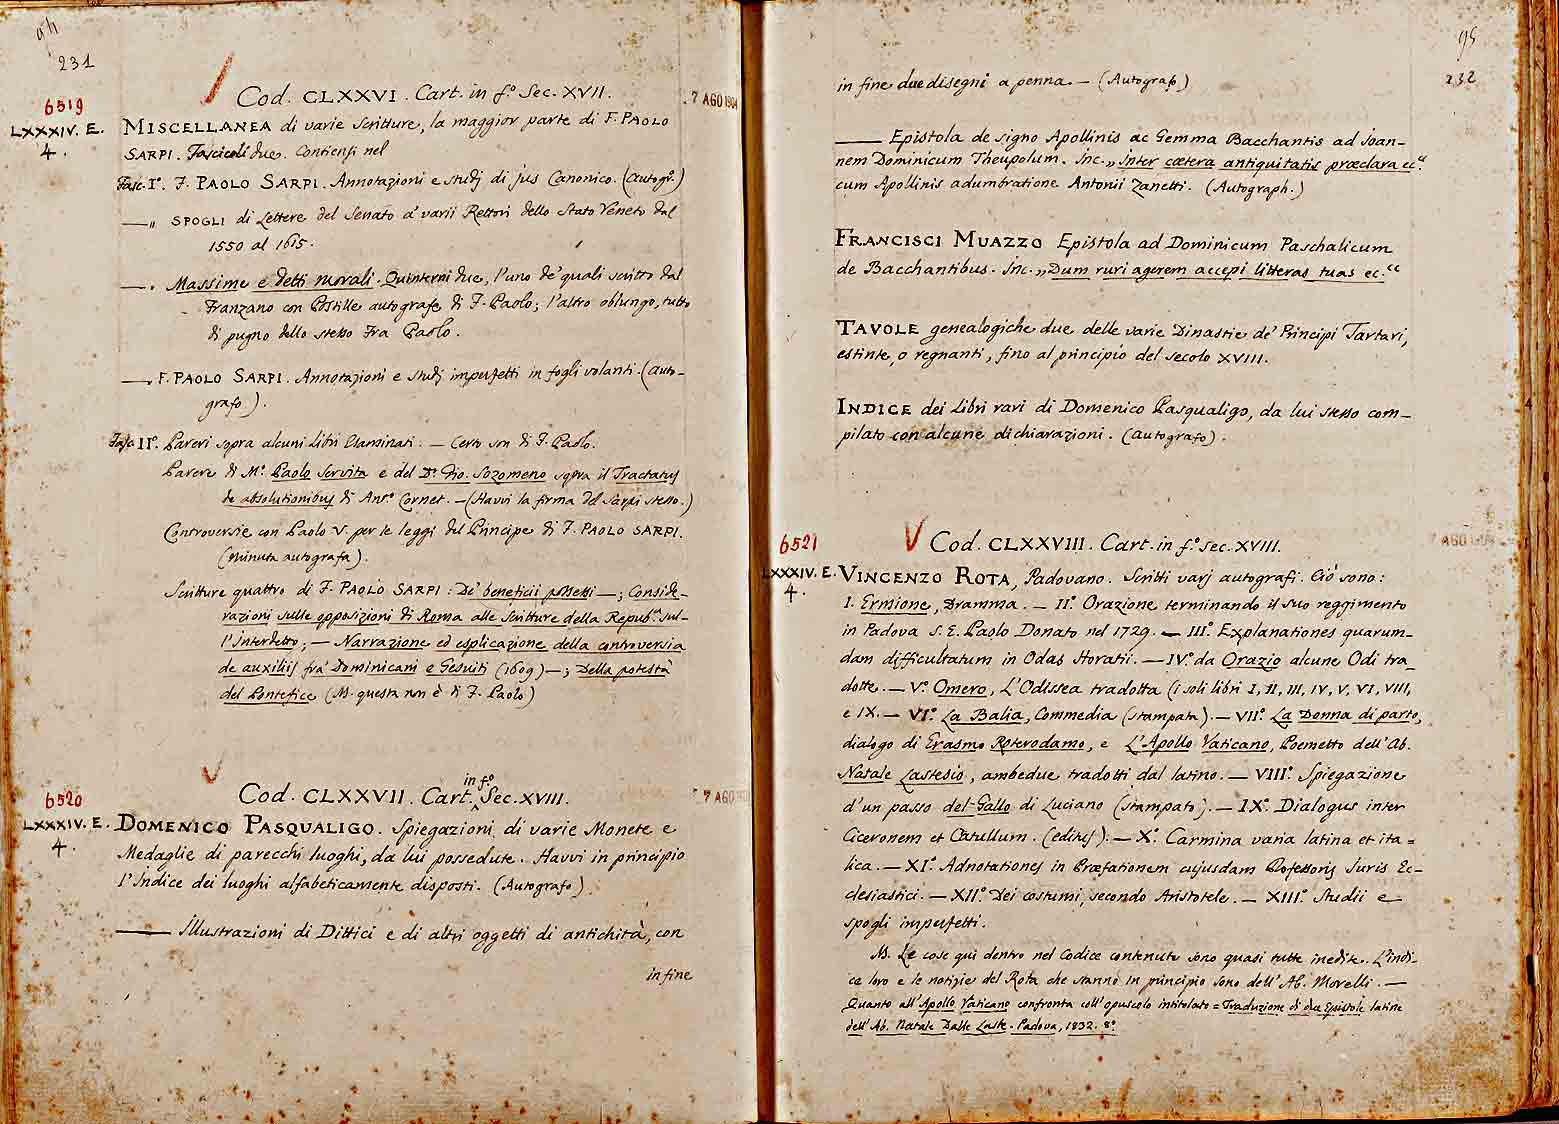 94
231
Cod. CLXXVI. Cart. in f.º Sec. XVII.
6519
7 AGO 1904
LXXXIV. E.
4.
MISCELLANEA di varie scritture, la maggior parte di F. PAOLO
SARPI. Fascicoli due. Contiensi nel
Fasc. Iº. F. PAOLO SARPI. Annotazioni e studj di jus Canonico. (Autogr.)
—„ SPOGLI di Lettere del Senato a' varii Rettori dello Stato Veneto dal
1550 al 1615.
—. Massime e detti morali. Quinterni due, l'uno de' quali scritto dal
Franzano con Postille autografe di F. Paolo; l'altro oblungo, tutto
di pugno dello stesso Fra Paolo.
—. F. PAOLO SARPI. Annotazioni e studj imperfetti in fogli volanti. (Auto-
grafo).
Fasc. IIº. Pareri sopra alcuni libri esaminati. — Certo son di F. Paolo.
Parere di Mº. Paolo Servita e del Dr. Gio. Sozomeno sopra il Tractatus
de absolutionibus di Ant.º Cornet. — (Havvi la firma del Sarpi stesso.)
Controversie con Paolo V. per le leggi del Principe di F. PAOLO SARPI.
(Minuta autografa).
Scritture quattro di F. PAOLO SARPI: De' beneficii possessi —; Conside-
razioni sulle opposizioni di Roma alle Scritture della Repub.ca sul-
l'Interdetto; — Narrazione ed esplicazione della controversia
de auxiliis fra Dominicani e Gesuiti (1609) —; Della potestà
del Pontefice (NB. questa non è di F. Paolo)
Cod. CLXXVII. Cart. in fº Sec. XVIII.
6520
7 AGO
LXXXIV. E.
4.
DOMENICO PASQUALIGO. Spiegazioni di varie Monete e
Medaglie di parecchi luoghi, da lui possedute. Havvi in principio
l'Indice dei luoghi alfabeticamente disposti. (Autografo).
— Illustrazioni di Dittici e di altri oggetti di antichità, con
in fine
95
232
in fine due disegni a penna. — (Autografo)
— Epistola de signo Apollinis ac Gemma Bacchantis ad Joan-
nem Dominicum Theupolum. Inc. „Inter cætera antiquitatis præclara ec.“
cum Apollinis adumbratione Antonii Zanetti. (Autograph.)
FRANCISCI MUAZZO Epistola ad Dominicum Paschalicum
de Bacchantibus. Inc. „Dum ruri agerem accepi litteras tuas ec.“
TAVOLE genealogiche due delle varie Dinastie de' Principi Tartari,
estinte, o regnanti, fino al principio del secolo XVIII.
INDICE dei Libri rari di Domenico Pasqualigo, da lui stesso com-
pilato con alcune dichiarazioni. (Autografo).
6521
Cod. CLXXVIII. Cart. in fº. sec. XVIII.
AGO
LXXXIV. E.
4.
VINCENZO ROTA, Padovano. Scritti varj autografi. Ciò sono:
I. Ermione, Dramma. — IIº. Orazione terminando il suo reggimento
in Padova S. E. Paolo Donato nel 1729. — IIIº. Explanationes quarum-
dam difficultatum in Odas Horatii. — IVº. da Orazio alcune Odi tra-
dotte. — Vº. Omero, L'Odissea tradotta (i soli libri I, II, III, IV, V, VI, VIII,
e IX. — VIº. La Balia, Commedia (stampata). — VIIº. La Donna di parto,
dialogo di Erasmo Roterodamo, e L'Apollo Vaticano, Poemetto dell'Ab.
Natale Lastesio, ambedue tradotti dal latino. — VIIIº. Spiegazione
d'un passo del Gallo di Luciano (stampato). — IXº. Dialogus inter
Ciceronem et Catullum. (editus). — Xº. Carmina varia latina et ita=
lica. — XIº. Adnotationes in Præfationem cujusdam Professoris Juris Ec-
clesiastici. — XIIº. Dei costumi, secondo Aristotele. — XIIIº. Studii e
spogli imperfetti.
NB. Le cose qui dentro nel Codice contenute sono quasi tutte inedite. L'indi-
ce loro e le notizie del Rota che stanno in principio sono dell'Ab. Morelli. —
Quanto all'Apollo Vaticano confronta coll'opuscolo intitolato = Traduzione di due Epistole latine
dell'Ab. Natale Dalle Laste. Padova, 1832. 8º